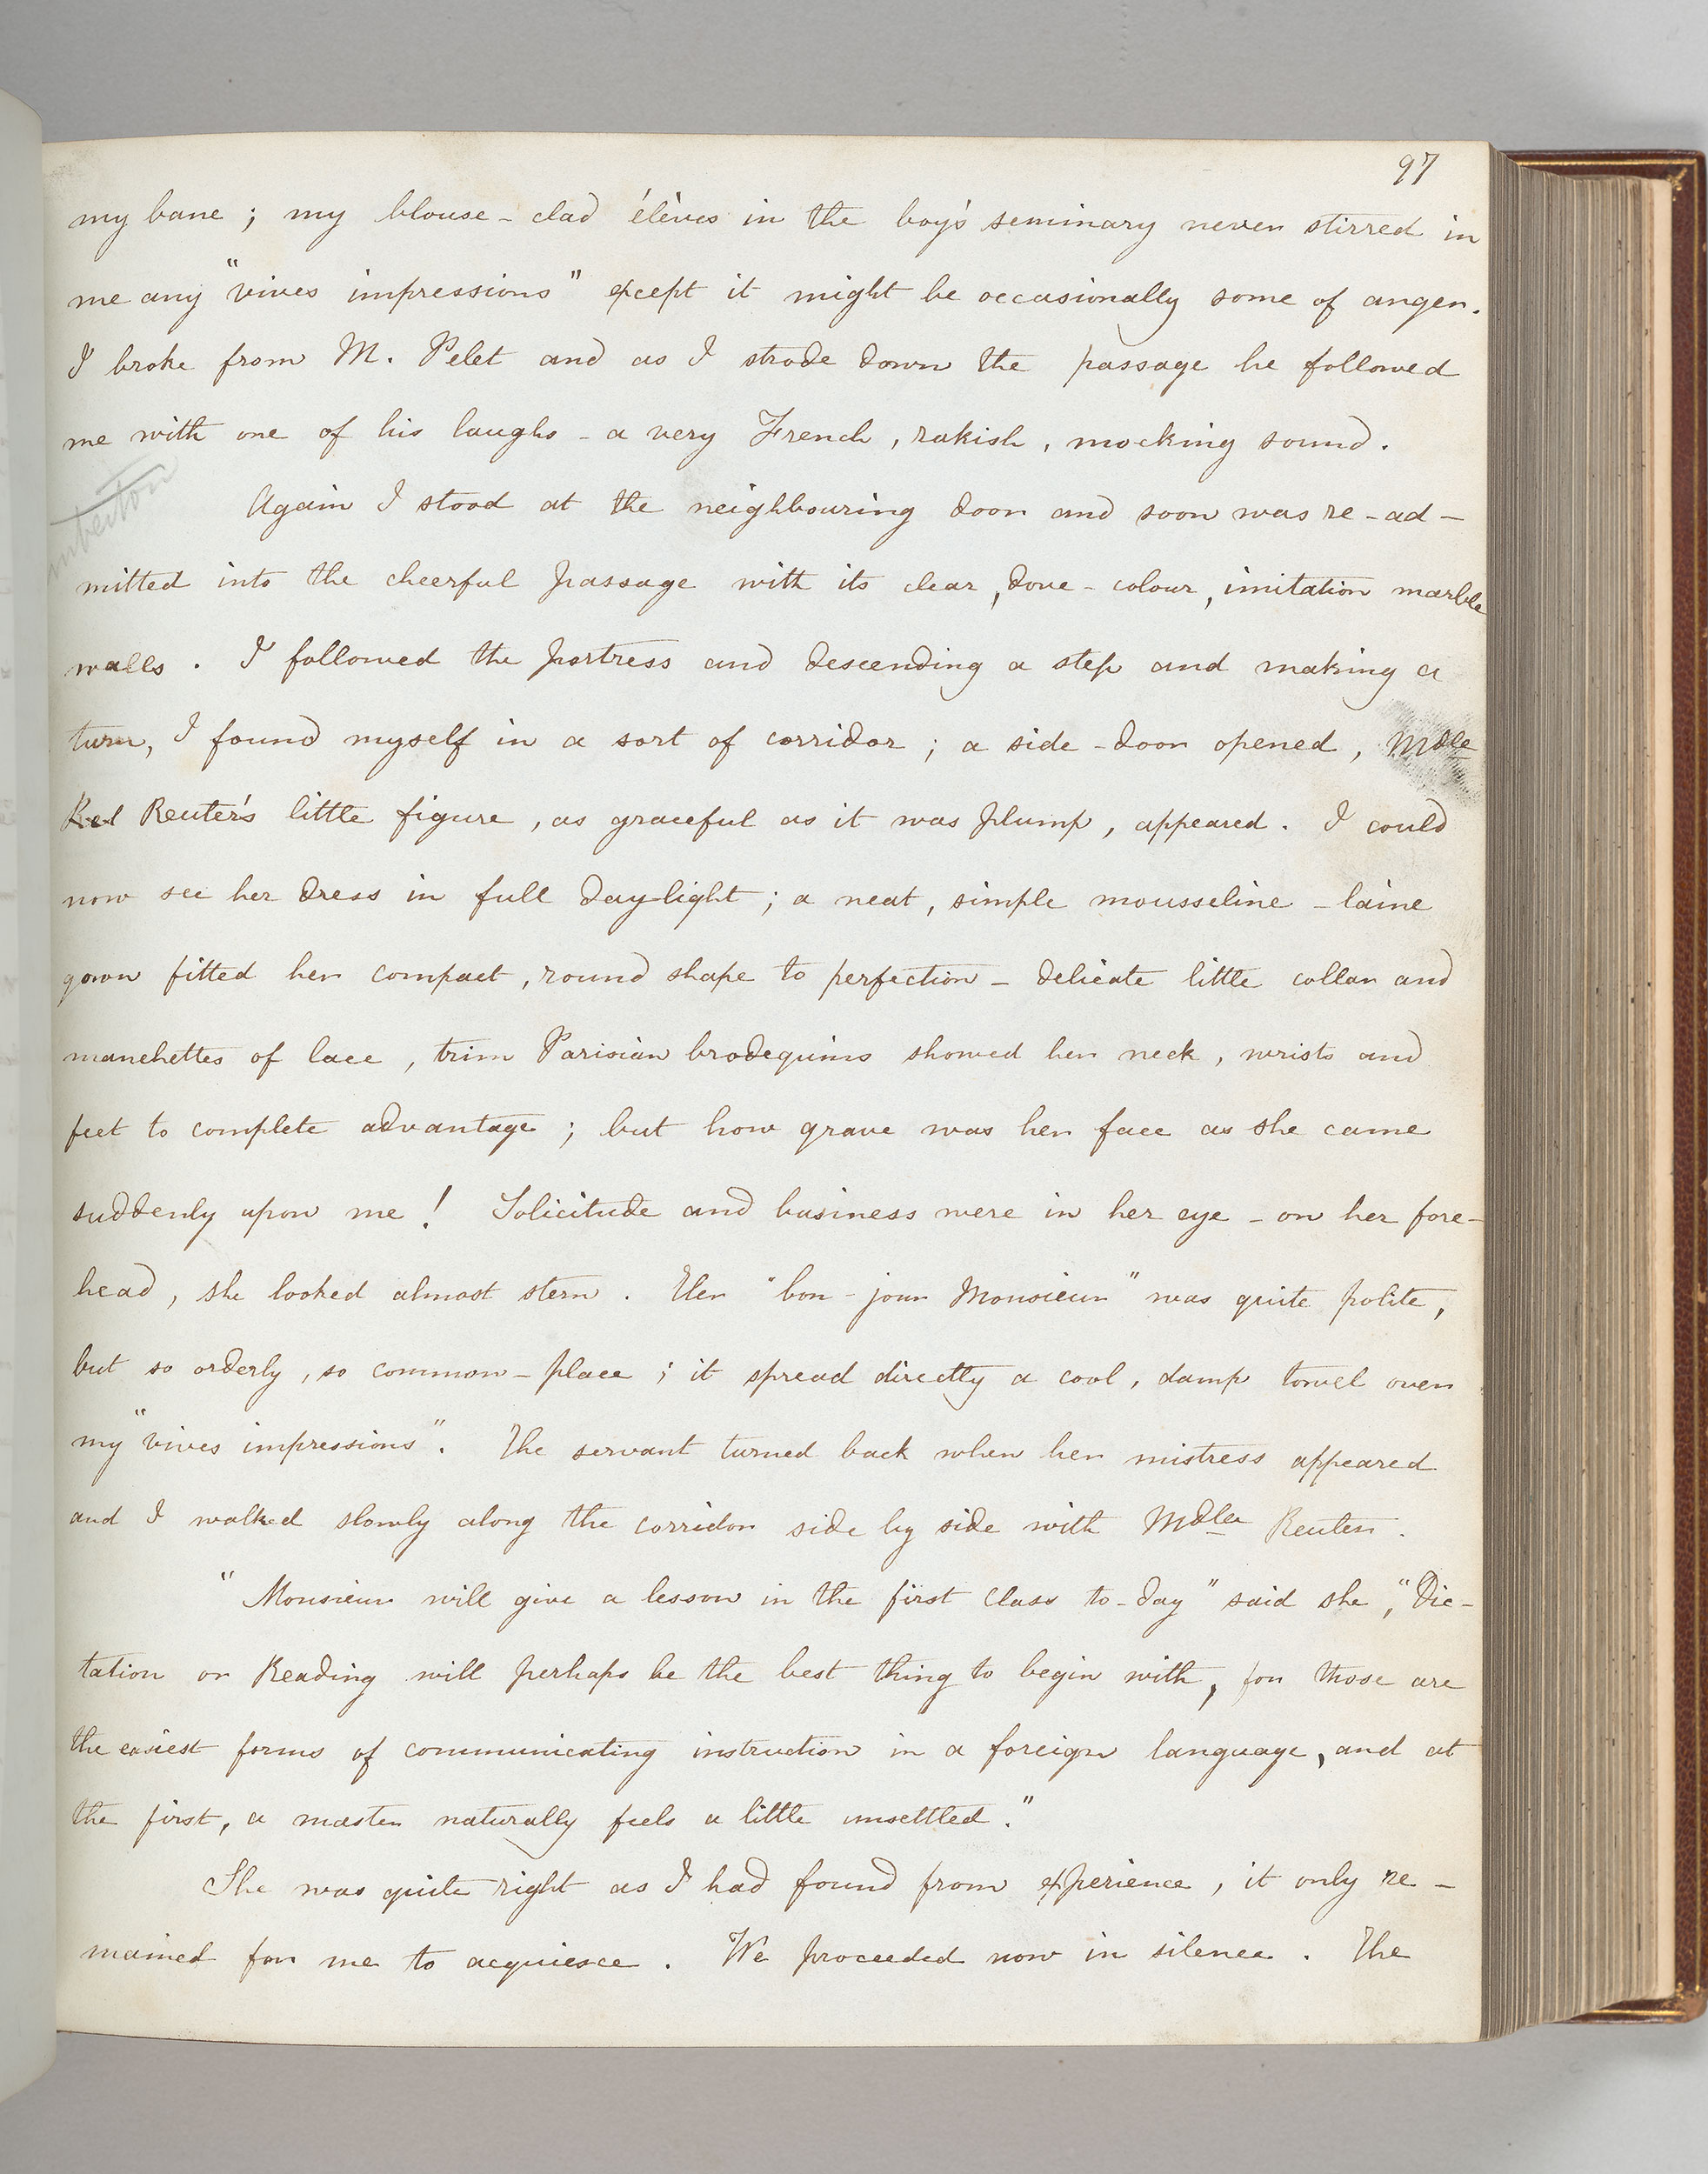 97
my bane ; my blouse-clad élèves in the boy's seminary never stirred in
me any "vives impressions" except it might be occasionally some of anger.
I broke from M. Pelet and as I strode down the passage he followed
me with one of his laughs - a very French, rakish, mocking sound.
Again I stood at the neighbouring door and soon was re-ad-
mitted into the cheerful passage with its clear, dove-colour, imitation marble
walls. I followed the portress and descending a step and making a
turn, I found myself in a sort of corridor ; a side-door opened, Mdle
Reuter's little figure, as graceful as it was plump, appeared. I could
now see her dress in full day-light ; a neat, simple mousseline-laine
gown fitted her compact, round shape to perfection - delicate little collar and
manchettes of lace, trim Parisian brodequins showed her neck, wrists and
feet to complete advantage ; but how grave was her face as she came
suddenly upon me ! Solicitude and business were in her eye - on her fore-
head, she looked almost stern. Her "bon-jour Monsieur" was quite polite,
but so orderly, so common-place ; it spread directly a cool, damp towel over
my "vives impressions". The servant turned back when her mistress appeared
and I walked slowly along the corridor side by side with Mdle Reuter.
"Monsieur will give a lesson in the first class to-day" said she, "Dic-
tation or Reading will perhaps be the best thing to begin with, for those are
the easiest forms of communicating instruction in a foreign language, and at
the first, a master naturally feels a little unsettled."
She was quite right as I had found from experience, it only re-
mained for me to acquiesce. We proceeded now in silence. The